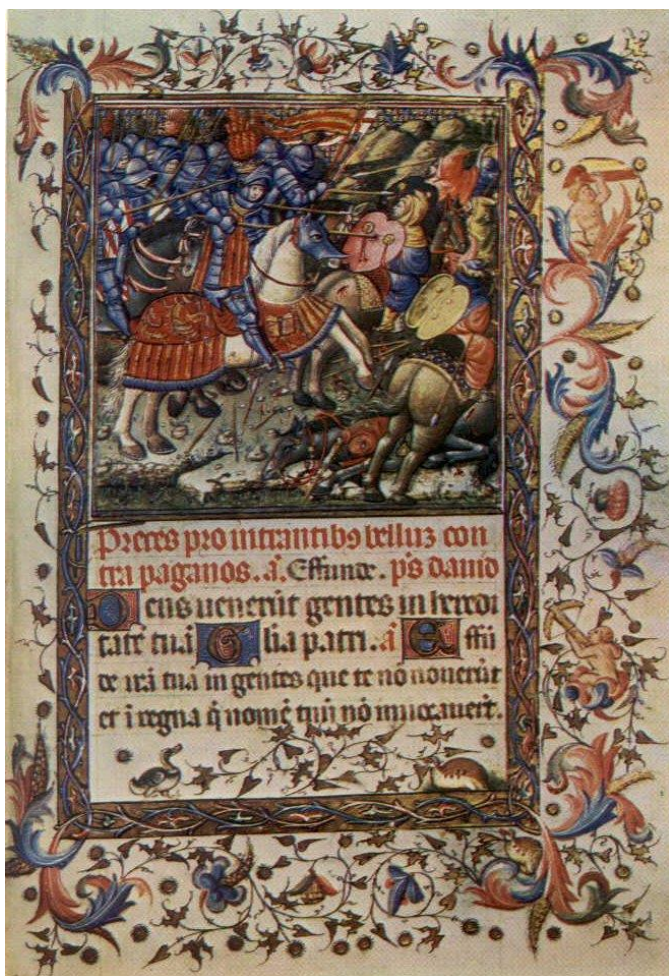 Preces pro intrantibꝯ belluz con
tra paganos. a̅. Effunde. p̅s dauid
Deus uenerūt gentes in heredi
tatē tuā Gl̅ia patri. a̅ Effū
de irā tuā in gentes que te nō nouerūt
et ī regna q̅ nomē tuū nō inuocauerūt.